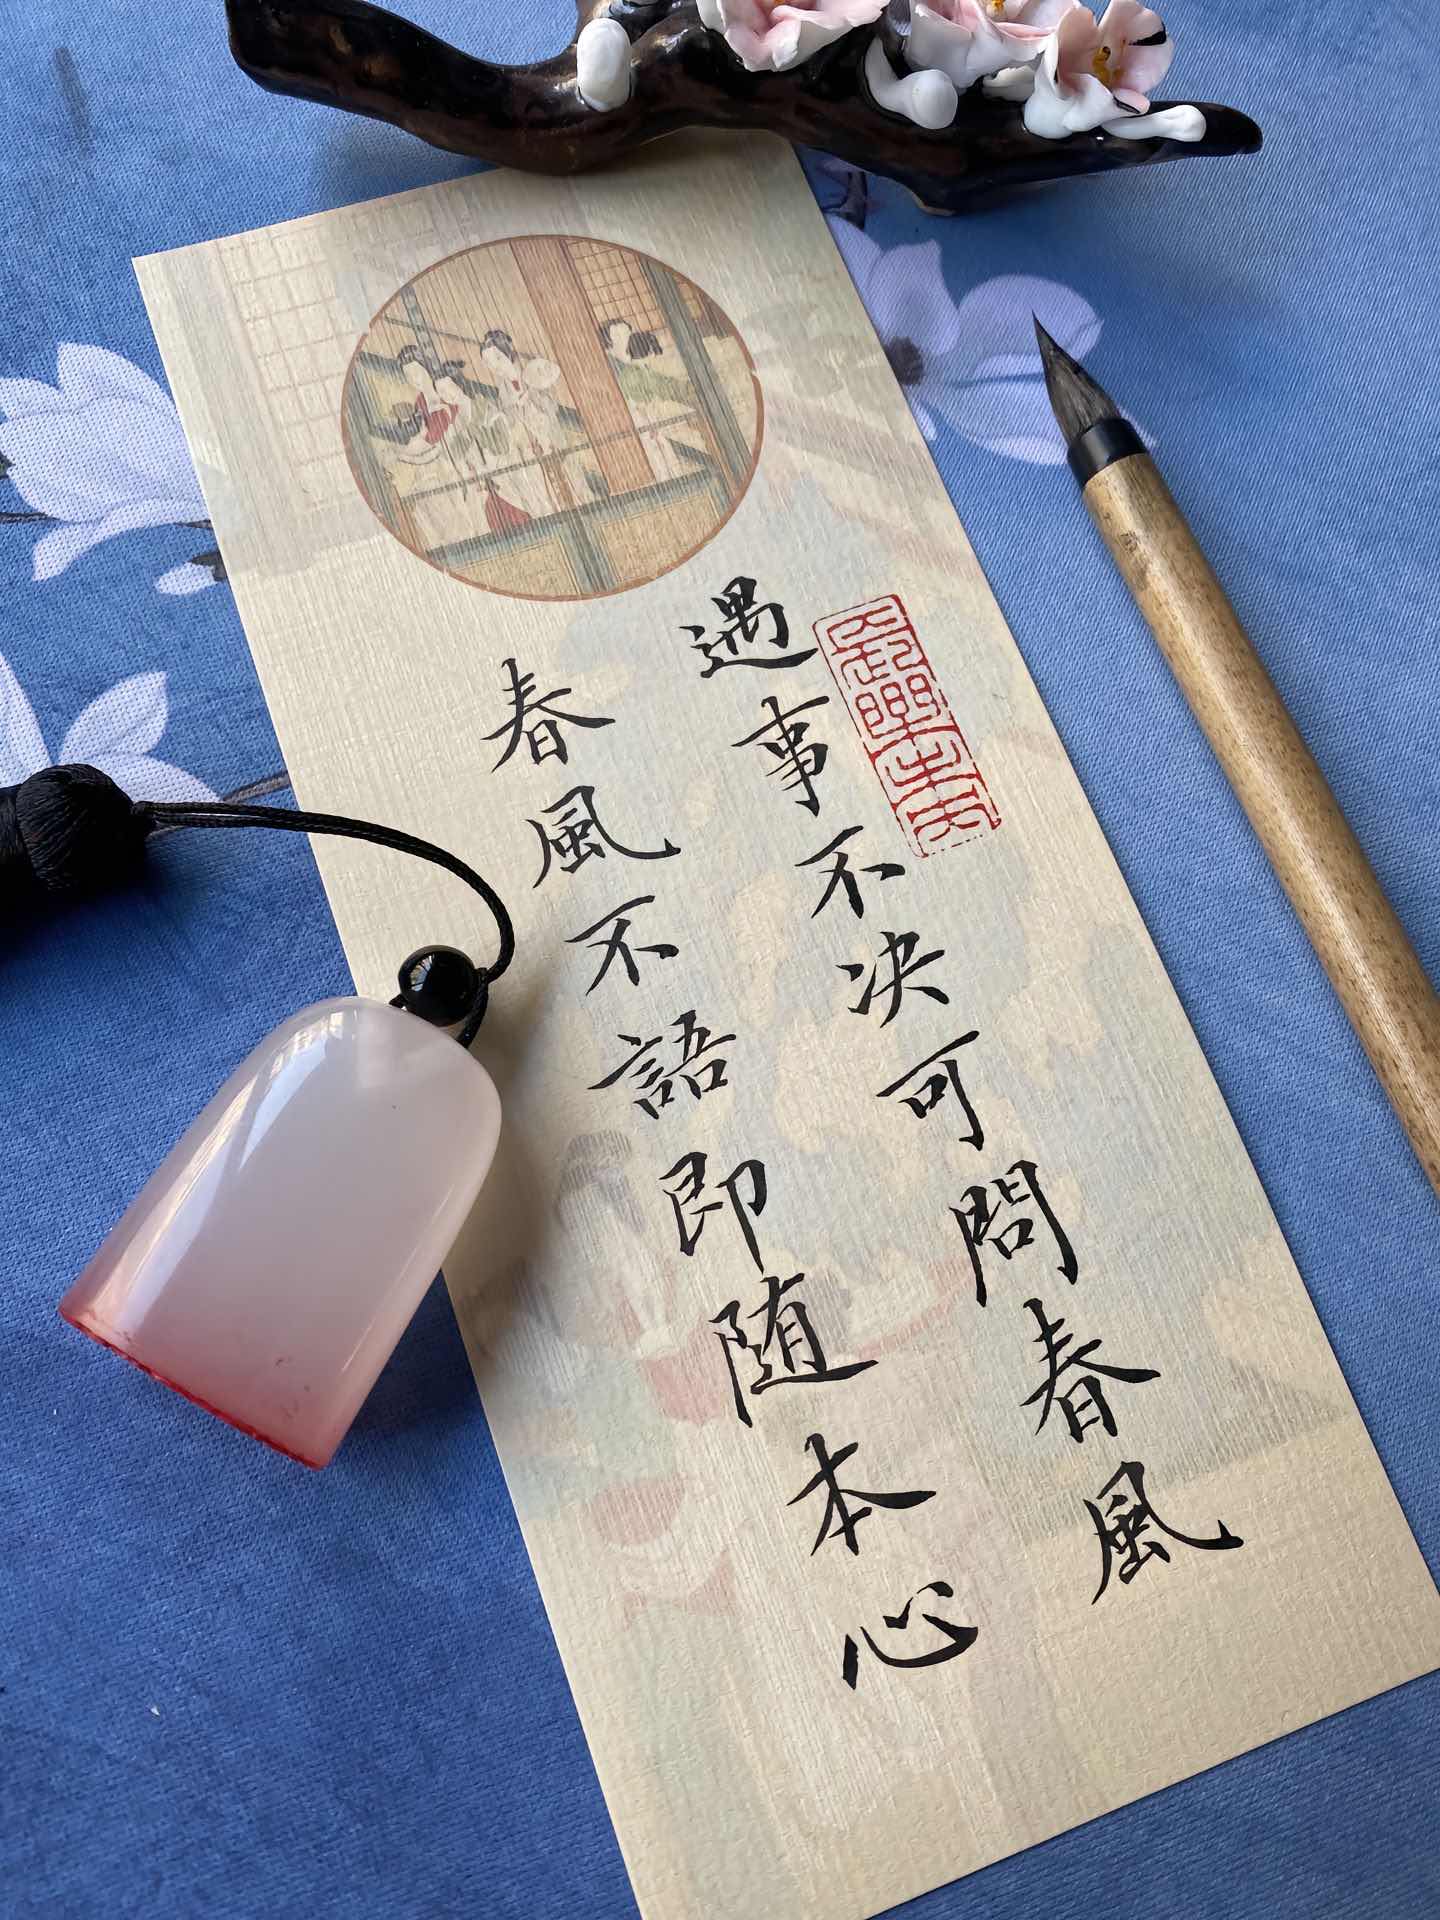 遇事不决可問春風
春風不語即随本心